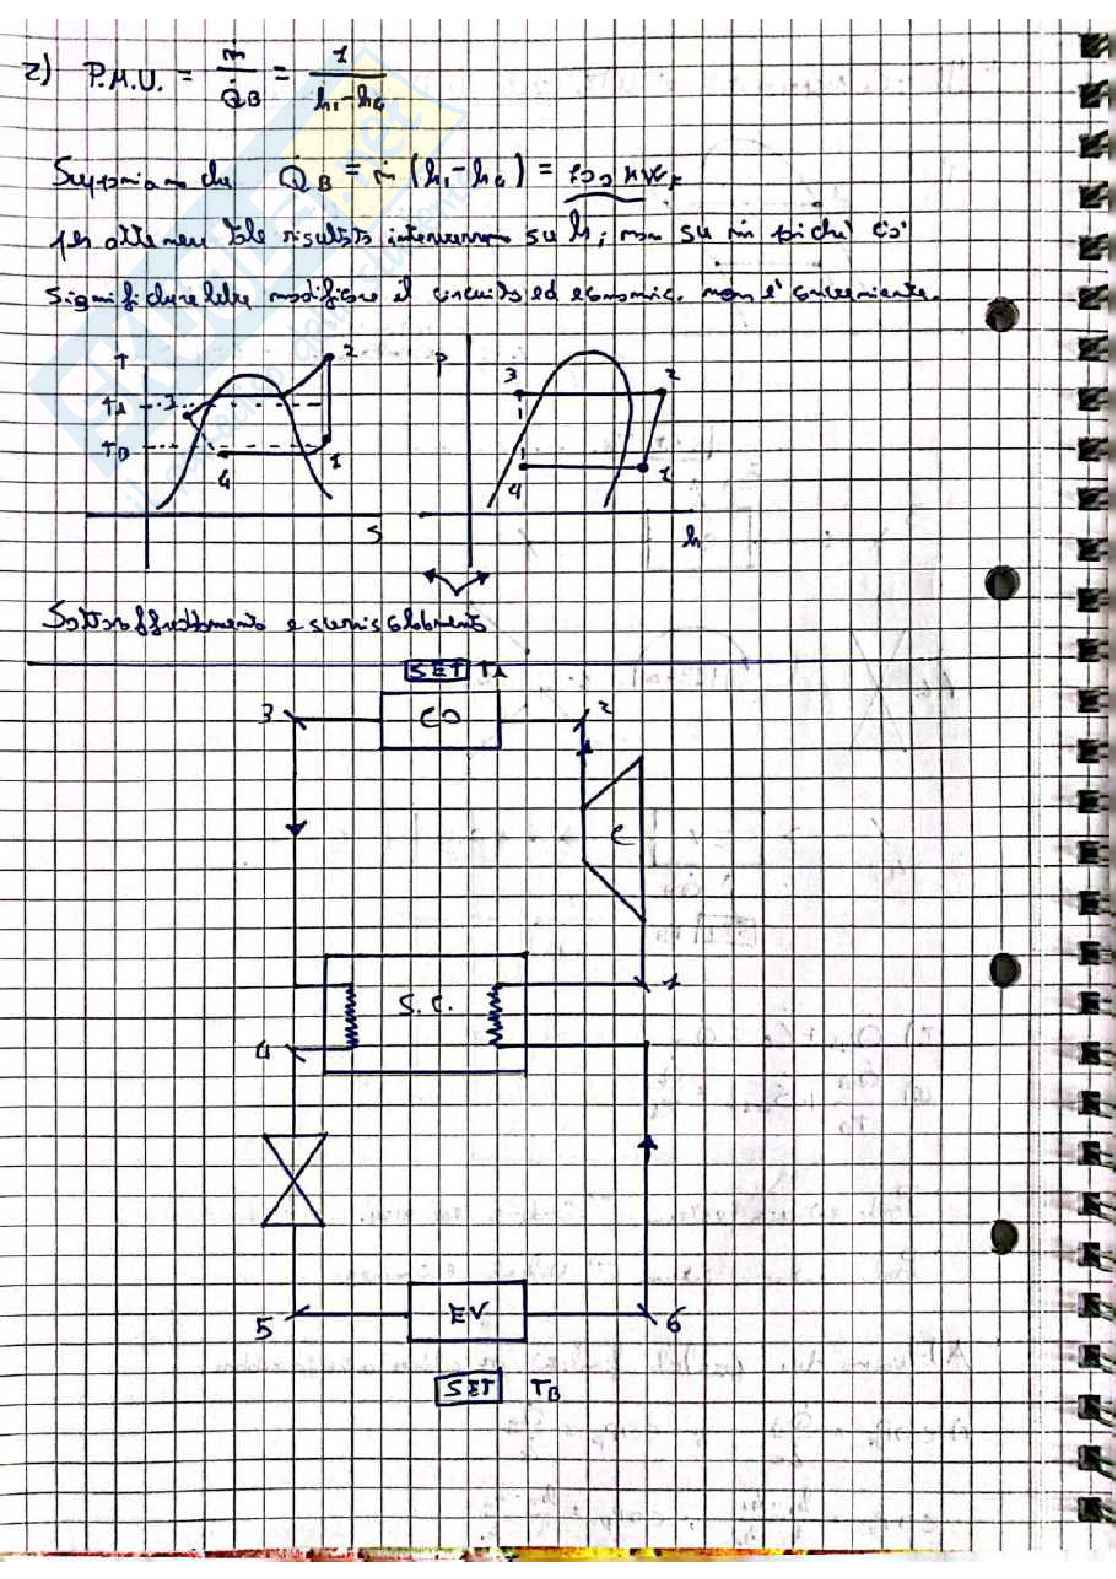 2) P.M.U. = ṁ / Q̇B = 1 / h1-h4
Supponiamo che Q̇B = ṁ (h1-h4) = 100 kWF
per ottenere tale risultato interverremo su h; non su ṁ poiché ciò
significherebbe modificare il circuito ed economic. non è conveniente.
T TA TB 3 2 4 1 S
P 3 2 4 1 h
Sottoraffreddamento e surriscaldamento
SET TA
3 CO 2
C
S.C. 1
4
5 EV 6
SET TB